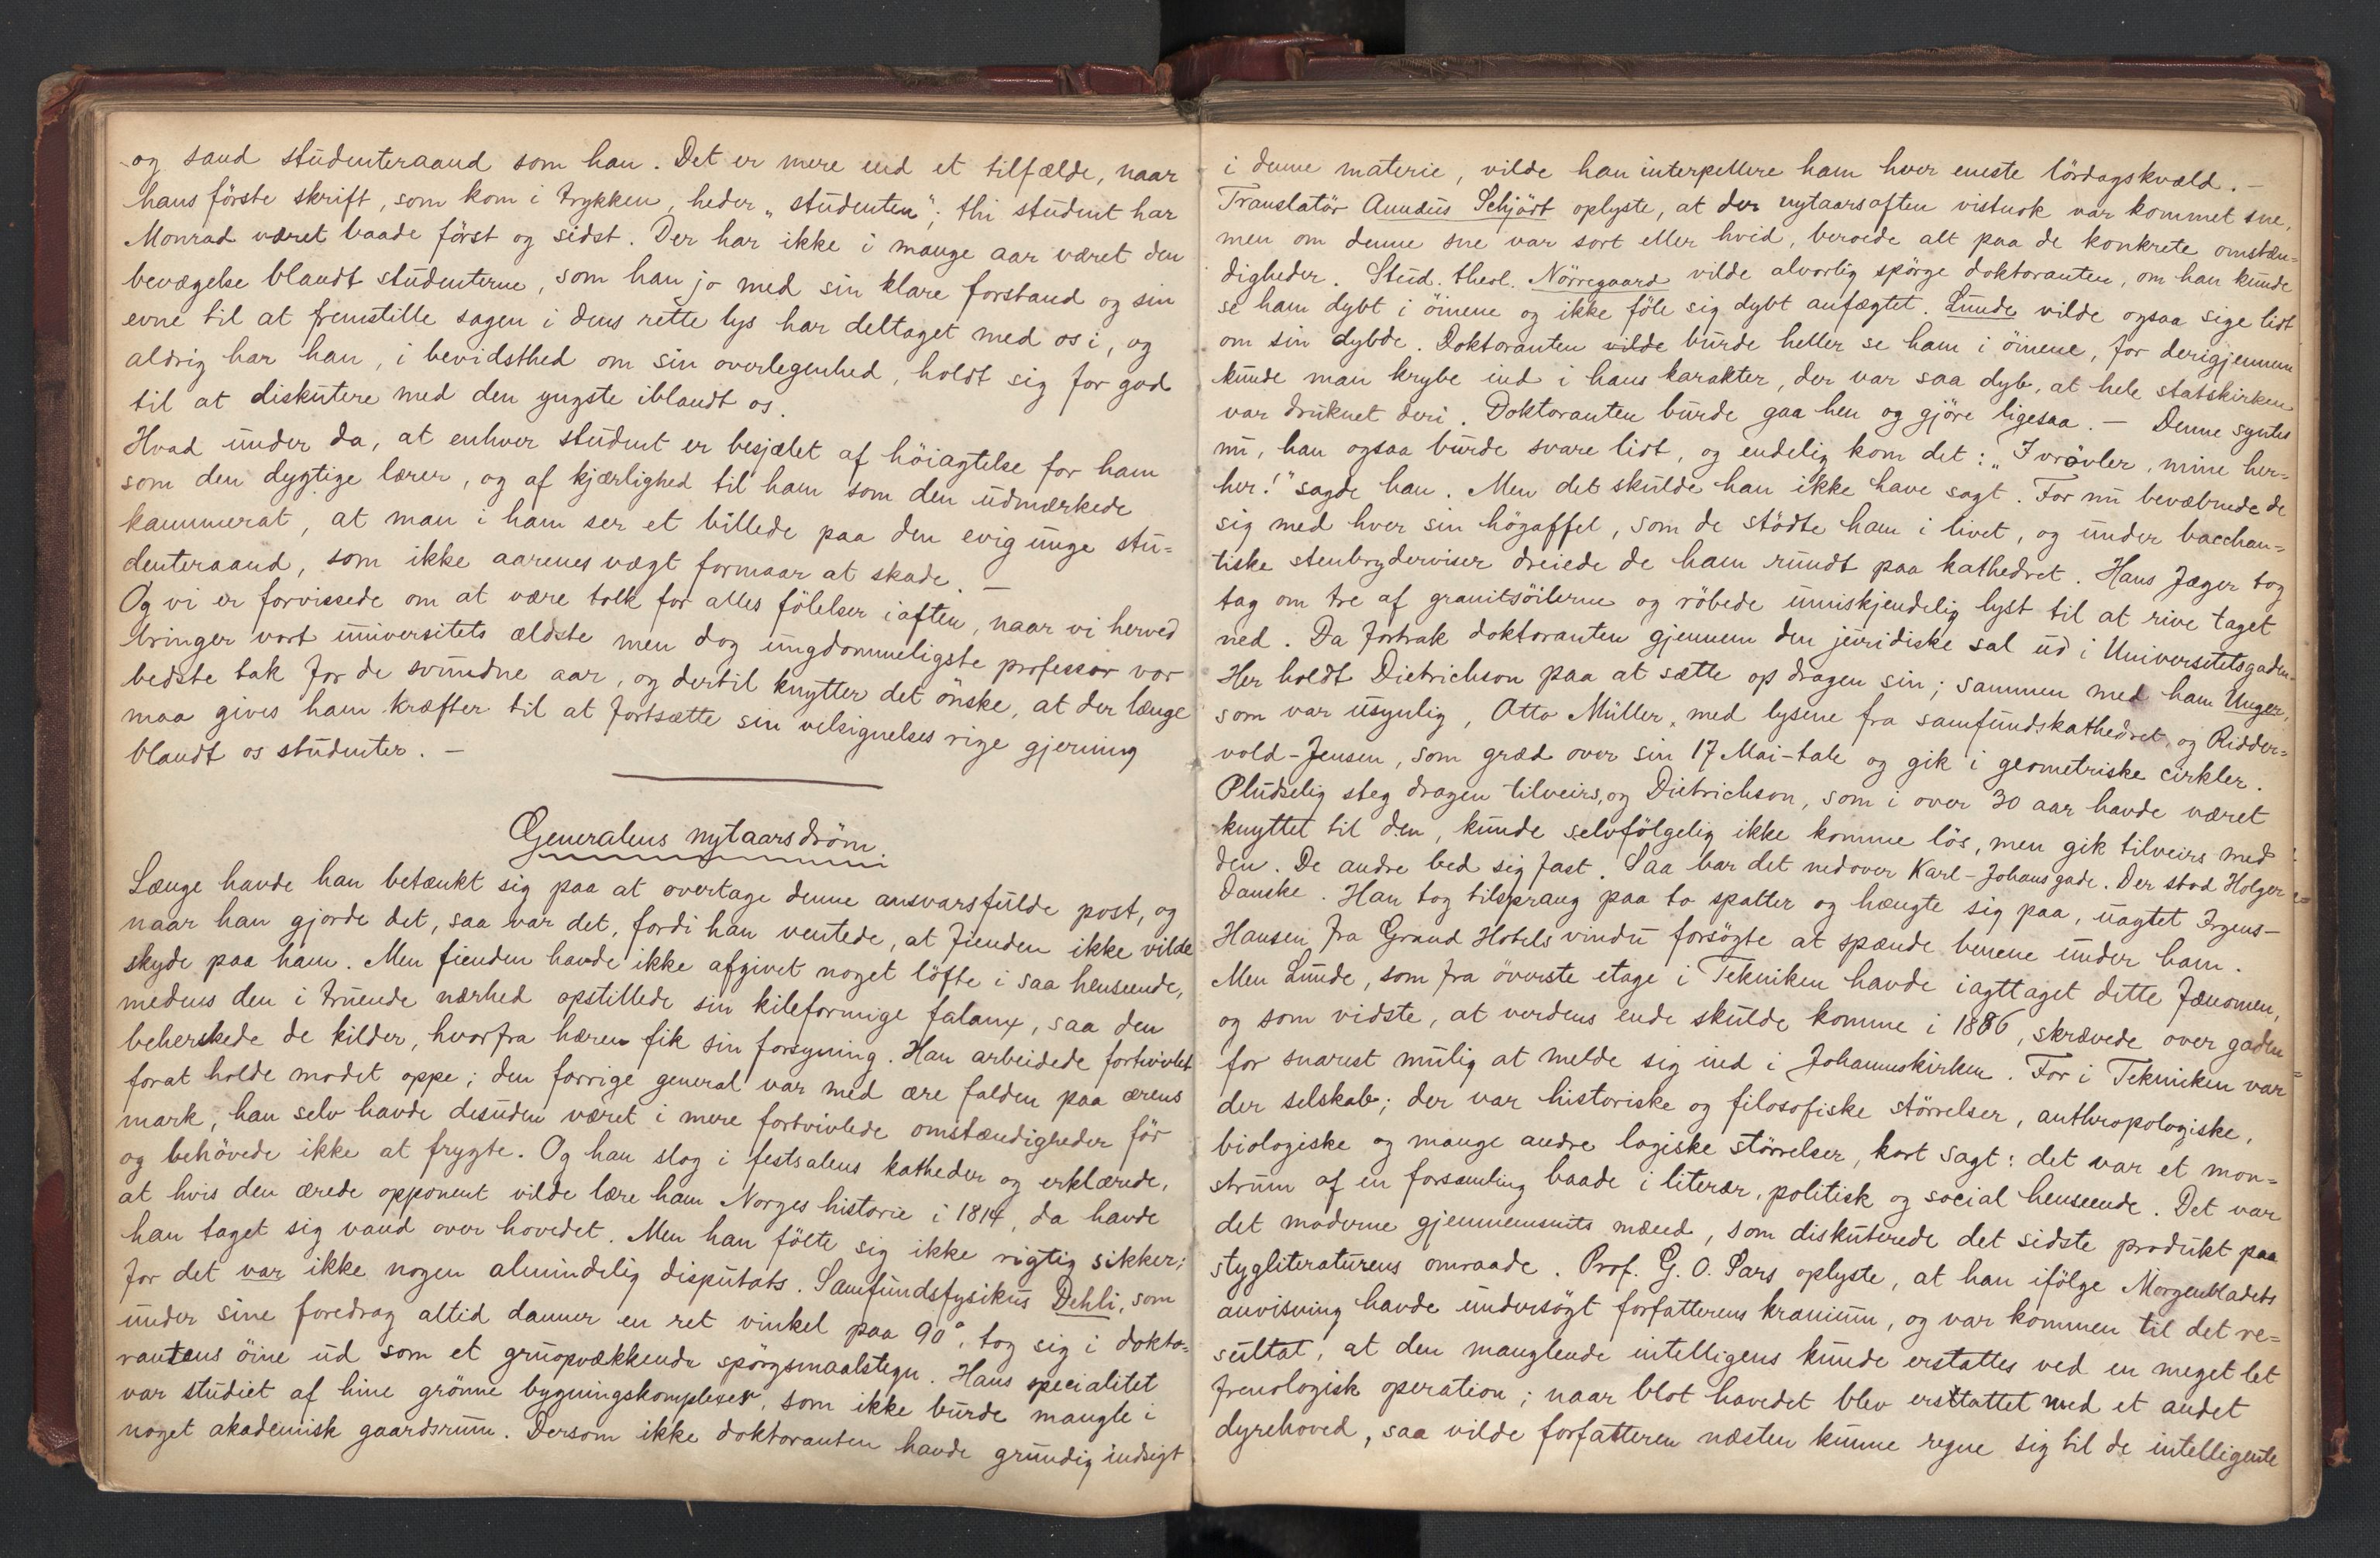 og sand studenteraand som han. Det er mere end et tilfælde, naar
hans förste skrift, som kom i trykken, heder „studenten“; thi student har
Monrad været baade först og sidst. Der har ikke i mange aar været den
bevægelse blandt studenterne, som han jo med sin klare forstand og sin
evne til at fremstille sagen i dens rette lys har deltaget med os i, og
aldrig har han, i bevidsthed om sin overlegenhed, holdt sig for god
til at diskutere med den yngste iblandt os.
Hvad under da, at enhver student er besjælet af höiagtelse for ham
som den dygtige lærer, og af kjærlighed til ham som den udmærkede
kammerat, at man i ham ser et billede paa den evig unge stu=
denteraand, som ikke aarenes vægt formaar at skade. —
Og vi er forvissede om at være tolk for alles fölelser iaften, naar vi herved
bringer vort universitets ældste men dog ungdommeligste professor vor
bedste tak for de svundne aar, og dertil knytter det önske, at der længe
maa gives ham kræfter til at fortsætte sin velsignelses rige gjerning
blandt os studenter. —
Generalens nytaarsdröm.
Længe havde han betænkt sig paa at overtage denne ansvarsfulde post, og
naar han gjorde det, saa var det, fordi han ventede, at fienden ikke vilde
skyde paa ham. Men fienden havde ikke afgivet noget löfte i saa henseende,
medens den i truende nærhed opstillede sin kileformige falanx, saa den
beherskede de kilder, hvorfra hæren fik sin forsyning. Han arbeidede fortvivlet
forat holde modet oppe; den forrige general var med ære falden paa ærens
mark, han selv havde desuden været i mere fortvivlede omstændigheder för
og behövede ikke at frygte. Og han slog i festsalens katheder og erklærede,
at hvis den ærede opponent vilde lære ham Norges historie i 1814, da havde
han taget sig vand over hovedet. Men han fölte sig ikke rigtig sikker;
for det var ikke nogen almindelig disputats. Samfundsfysikus Dehli, som
under sine foredrag altid danner en ret vinkel paa 90°, tog sig i dokto=
rantens öine ud som et gruopvækkende spörgsmaalstegn. Hans specialitet
var studiet af hine grönne bygningskomplexer, som ikke burde mangle i
noget akademisk gaardsrum. Dersom ikke doktoranten havde grundig indsigt
i denne materie, vilde han interpellere ham hver eneste lördagskvæld. —
Translatör Anundus Schjött oplyste, at der nytaarsaften vistnok var kommet sne,
men om denne sne var sort eller hvid, beroede alt paa de konkrete omstæn=
digheder. Stud. theol. Nörregaard vilde alvorlig spörge doktoranten, om han kunde
se ham dybt i öinene og ikke föle sig dybt anfægtet. Lunde vilde ogsaa sige lidt
om sin dybde. Doktoranten vilde burde heller se ham i öinene, for derigjennem
kunde man krybe ind i hans karakter, der var saa dyb, at hele statskirken
var druknet deri. Doktoranten burde gaa hen og gjöre ligesaa. — Denne syntes
nu, han ogsaa burde svare lidt, og endelig kom det: „I vrövler, mine her=
rer!“ sagde han. Men det skulde han ikke have sagt. For nu bevæbnede de
sig med hver sin högaffel, som de stödte ham i livet, og under bacchan=
tiske stenbryderviser dreiede de ham rundt paa kathedret. Hans Jæger tog
tag om tre af granitsöilerne og röbede umiskjendelig lyst til at rive taget
ned. Da fortrak doktoranten gjennem den juridiske sal ud i Universitetsgaden.
Her holdt Dietrichson paa at sætte op dragen sin; sammen med ham Unger,
som var usynlig, Otto Müller, med lysene fra samfundskathedret og Ridder=
vold-Jensen, som græd over sin 17 Mai-tale og gik i geometriske cirkler.
Pludselig steg dragen tilveirs, og Dietrichson, som i over 30 aar havde været
knyttet til den, kunde selvfölgelig ikke komme lös, men gik tilveirs med
den. De andre bed sig fast. Saa bar det nedover Karl-Johans gade. Der stod Holger
Danske. Han tog tilsprang paa to spalter og hængte sig paa, uagtet Irgens-
Hansen fra Grand Hotels vindu forsögte at spænde benene under ham.
Men Lunde, som fra överste etage i Tekniken havde iagttaget dette fænomen,
og som vidste, at verdens ende skulde komme i 1886, skrævede over gaden
for snarest mulig at melde sig ind i Johanneskirken. For i Tekniken var
der selskab; der var historiske og filosofiske störrelser, anthropologiske,
biologiske og mange andre logiske störrelser, kort sagt: det var et mon=
strum af en forsamling baade i literær, politisk og social henseende. Det var
det moderne gjennemsnits mænd, som diskuterede det sidste produkt paa
stygliteraturens omraade. Prof. G. O. Sars oplyste, at han ifölge Morgenbladets
anvisning havde undersögt forfatterens kranium, og var kommen til det re=
sultat, at den manglende intelligens kunde erstattes ved en meget let
frenologisk operation; naar blot hovedet blev erstattet med et andet
dyrehoved, saa vilde forfatteren næsten kunne regne sig til de intelligente